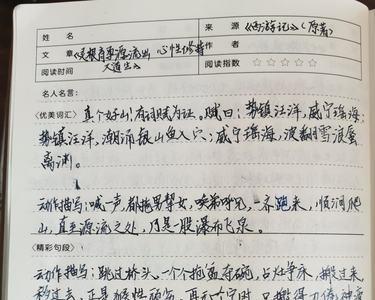 姓 名 来 源 《西游记》(原著)
文 章 《灵根育孕源流出 心性修持 作 者
大道生》
阅读时间 阅读指数 ☆☆☆☆☆
名人名言:
〈优美词汇〉 真个好山!有词赋为证。赋曰:势镇汪洋,威宁瑶海;
势镇汪洋,潮涌银山鱼入穴;威宁瑶海,波翻雪浪蜃
离渊。
动作描写:喊一声,都拖男挈女,唤弟呼兄,一齐跑来,顺涧爬
山,直至源流之处,乃是一股瀑布飞泉。
〈精彩句段〉
动作描写:跳过桥头,一个个抢盆夺碗,占灶争床,搬过来,
移过去,正是猴性顽劣,再无一个宁时,只搬得力倦神疲